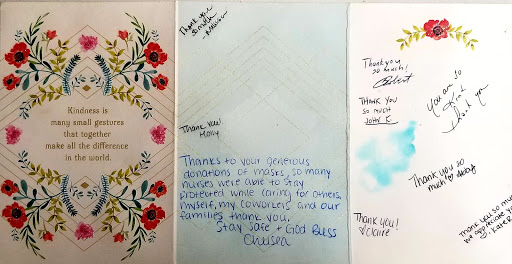 Kindness is
many small gestures
that together
make all the difference
in the world.
Thank you
Thank you!
Holly
Thanks to your generous
donations of masks, so many
nurses were able to stay
protected while caring for others.
Myself, my coworkers and our
families thank you.
Stay safe + God Bless
Chelsea
Thank you
so much!
THANK YOU
SO MUCH
JOHN K.
You are so
kind
Thank you
Thank you so
much
Thank you!
Claire
Thank you so much
we appreciate you